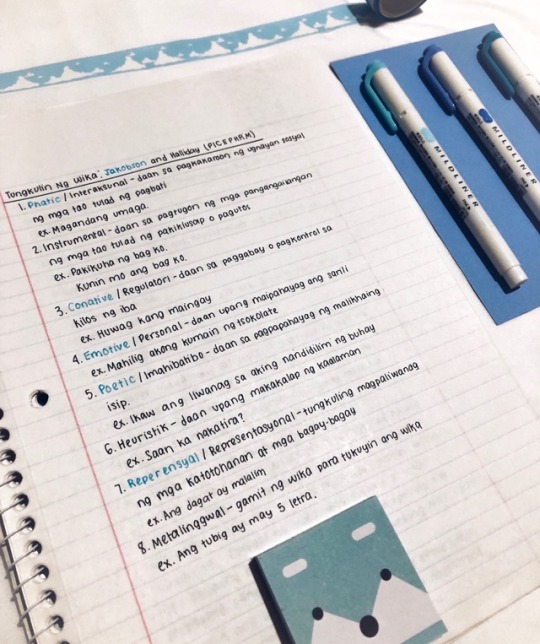 Tungkulin ng wika: Jakobson and Halliday (PICEPHRM)
1. Phatic / Interaksunal - daan sa pagkakaroon ng ugnayan sosyal
ng mga tao tulad ng pagbati
ex. Magandang umaga.
2. Instrumental - daan sa pagtugon ng mga pangangailangan
ng mga tao tulad ng pakikiusap o pagutos
ex. Pakikuha ng bag ko.
Kunin mo ang bag ko.
3. Conative / Regulatori - daan sa paggabay o pagkontrol sa
kilos ng iba
ex. Huwag kang maingay
4. Emotive / Personal - daan upang maipahayag ang sarili
ex. Mahilig akong kumain ng tsokolate
5. Poetic / Imahibatibo - daan sa pagpapahayag ng malikhaing
isip.
ex. Ikaw ang liwanag sa aking nandidilim ng buhay
6. Heuristik - daan upang makakalap ng kaalaman
ex. Saan ka nakatira?
7. Reperensyal / Representasyonal - tungkuling magpaliwanag
ng mga katotohanan at mga bagay-bagay
ex. Ang dagat ay malalim
8. Metalinggwal - gamit ng wika para tukuyin ang wika
ex. Ang tubig ay may 5 letra.
MILDLINER
MILDLINER